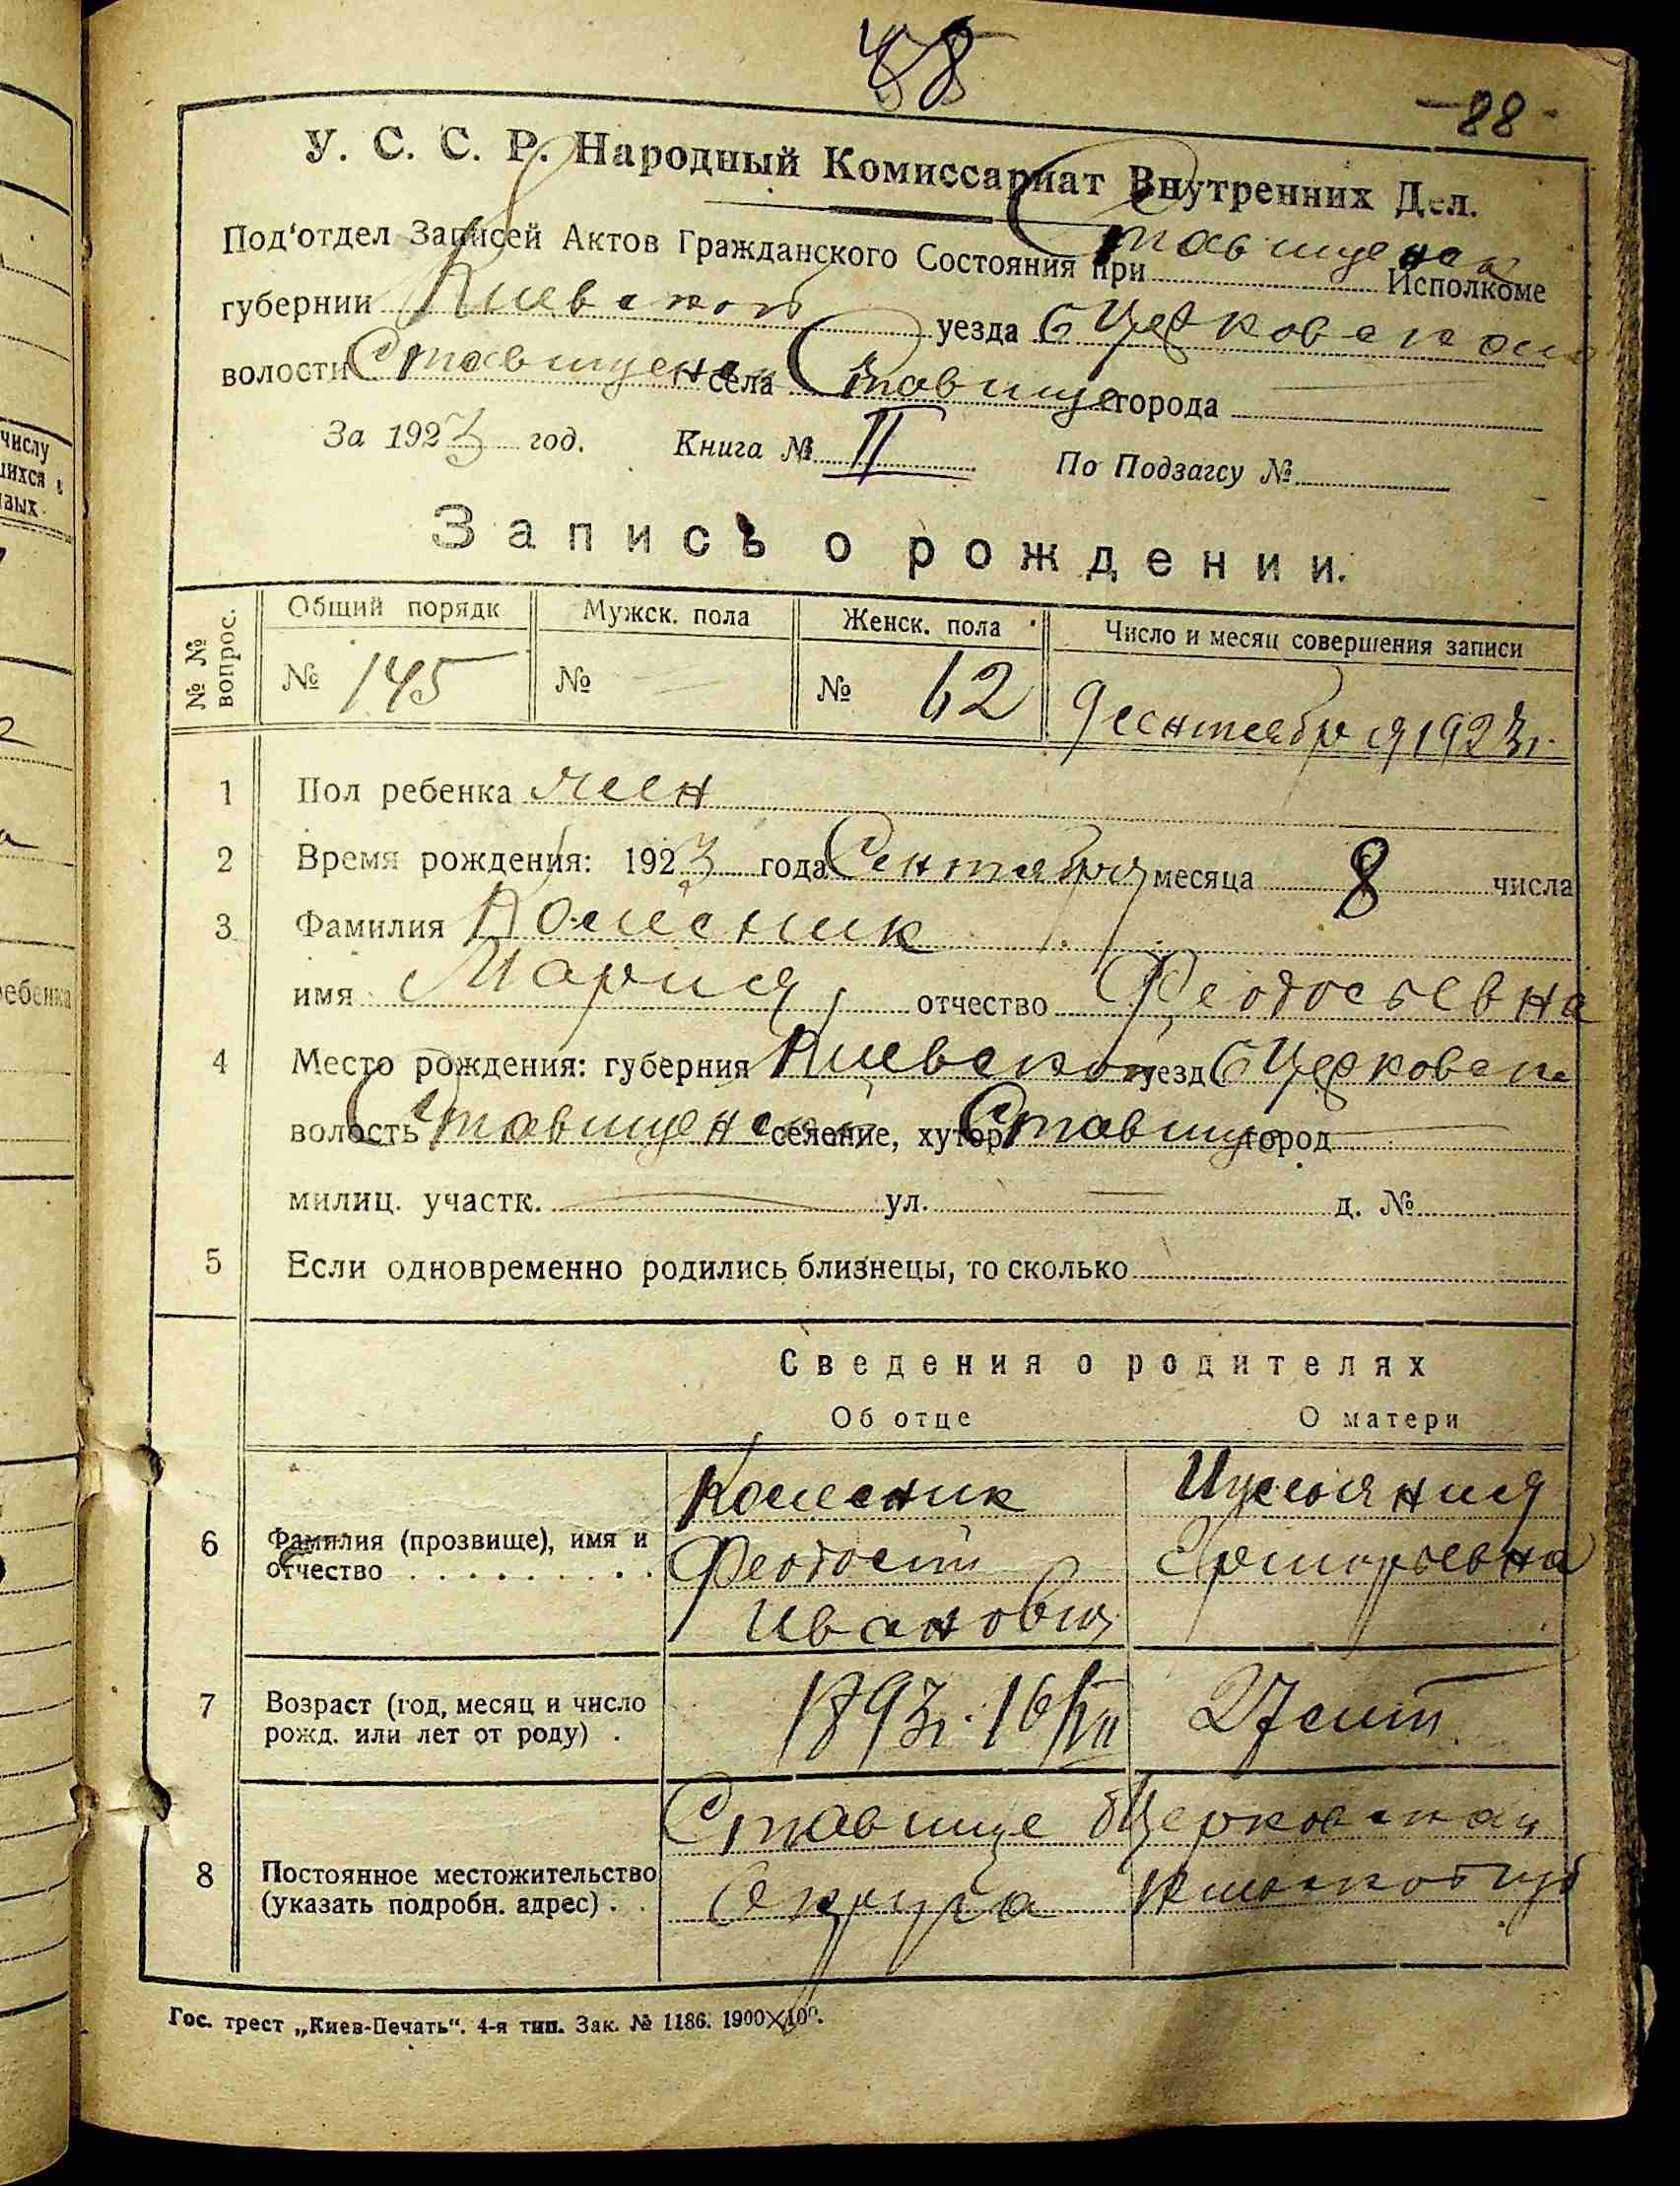 88
У. С. С. Р. Народный Комиссариат Внутренних Дел.
Под'отдел Записей Актов Гражданского Состояния при Ставищенск Исполкоме
губернии Киевской уезда бЦерковского
волости Ставищенск села Ставище города
За 1923 год. Книга № II По Подзагсу №
Запись о рождении.
№ № вопрос. Общий порядк Мужск. пола Женск. пола Число и месяц совершения записи
№ 145 № — № 62 9 сентября 1923г.
1 Пол ребенка жен
2 Время рождения: 1923 года Сентября месяца 8 числа
3 Фамилия Колесник
имя Мария отчество Феодосьевна
4 Место рождения: губерния Киевской уезд бЦерковск
волость Ставищенск селение, хутор Ставище город —
милиц. участк. — ул. — д. №
5 Если одновременно родились близнецы, то сколько
Сведения о родителях
Об отце О матери
6 Фамилия (прозвище), имя и отчество Колесник Феодосий Иванович Иулияния Григорьевна
7 Возраст (год, месяц и число рожд. или лет от роду) . 1893г. 16/VII 27 лет
8 Постоянное местожительство (указать подробн. адрес) . . Ставище бЦерковская Округа Киевской губ
Гос. трест „Киев-Печать“. 4-я тип. Зак. № 1186. 1900×100.